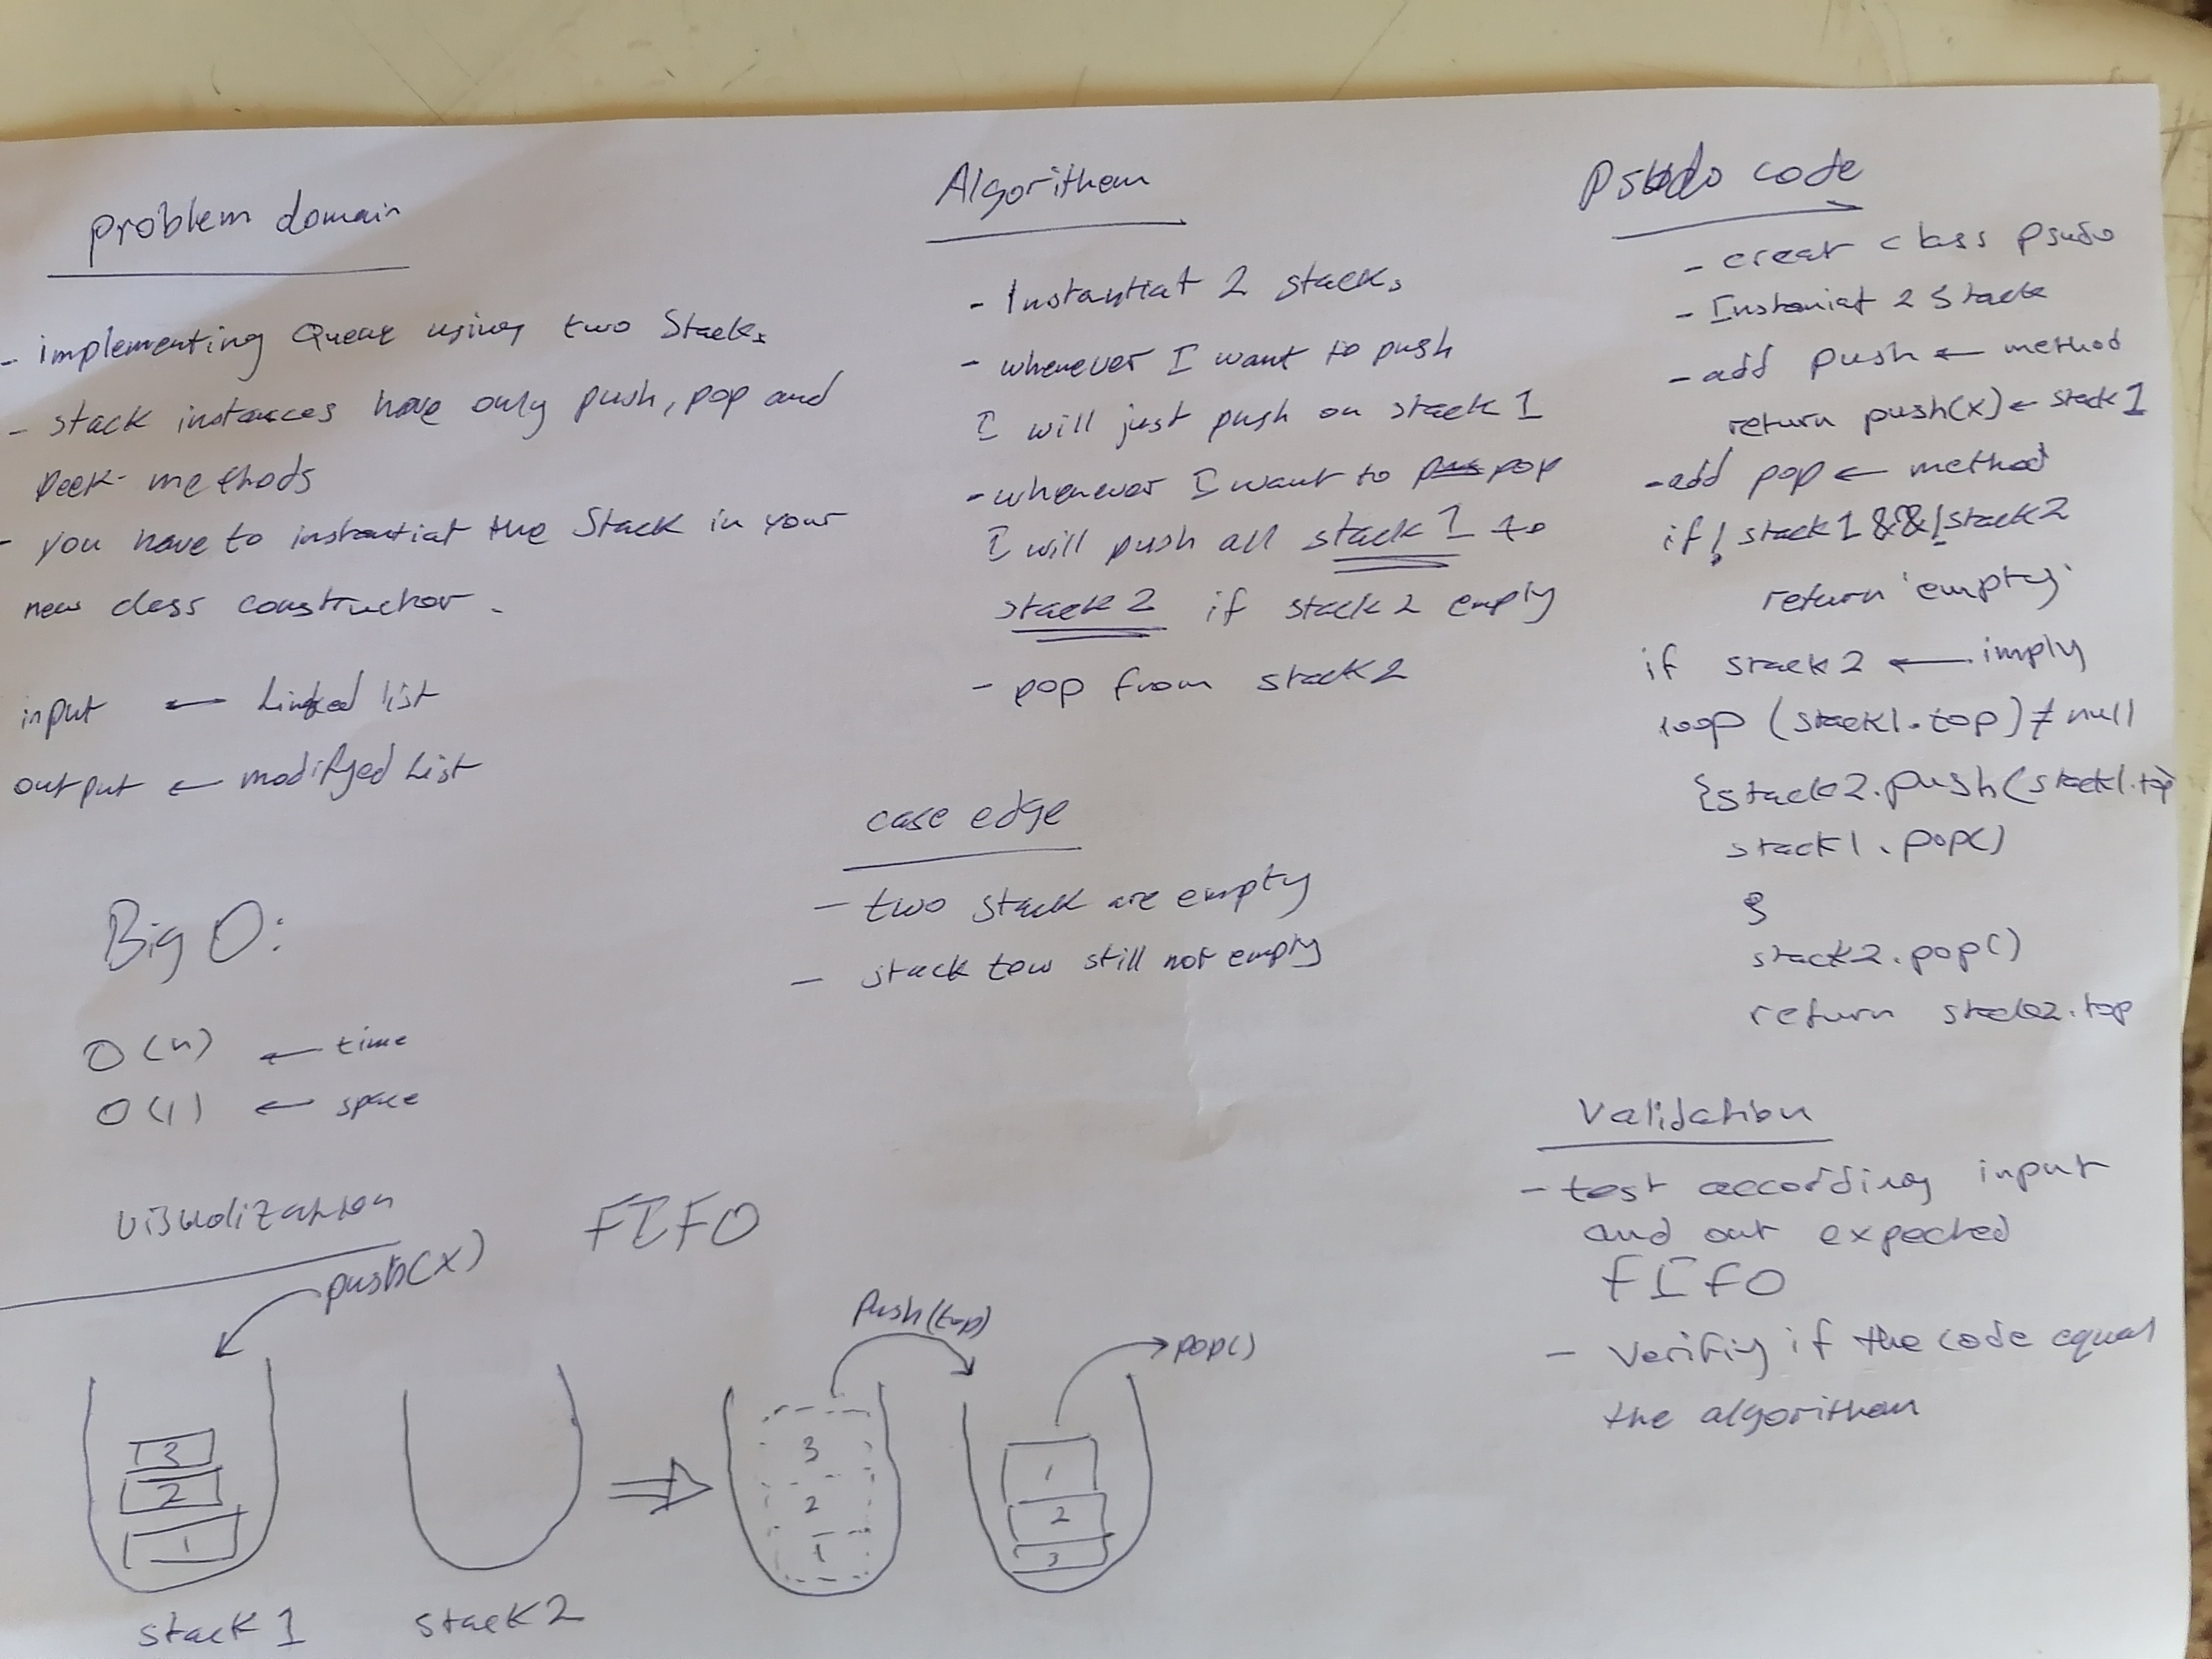 problem domain
- implementing Queue using two Stacks
- stack instances have only push, pop and
peek methods
- you have to instantiat the Stack in your
new class constructor.
input ← Linked list
output ← modifyed List
Big O:
O(n) ← time
O(1) ← space
Algorithem
- Instantiat 2 stacks
- whenever I want to push
I will just push on stack 1
- whenever I want to pop
I will push all stack 1 to
stack 2 if stack 2 empty
- pop from stack 2
case edge
- two stack are empty
- stack tow still not empty
Psudo code
- creat class psudo
- Instaniat 2 Stack
- add push ← method
return push(x) ← stack 1
- add pop ← method
if ! stack1 && !stack2
return 'empty'
if stack2 ← imply
loop (stack1.top) ≠ null
{stack2.push(stack1.top
stack1.pop()
}
stack2.pop()
return stack2.top
Validation
- test according input
and out expected
FIFO
- Verifiy if the code equal
the algorithem
visualization
FIFO
push(x)
Push(top)
pop()
3
2
1
3
2
1
1
2
3
stack 1
stack 2